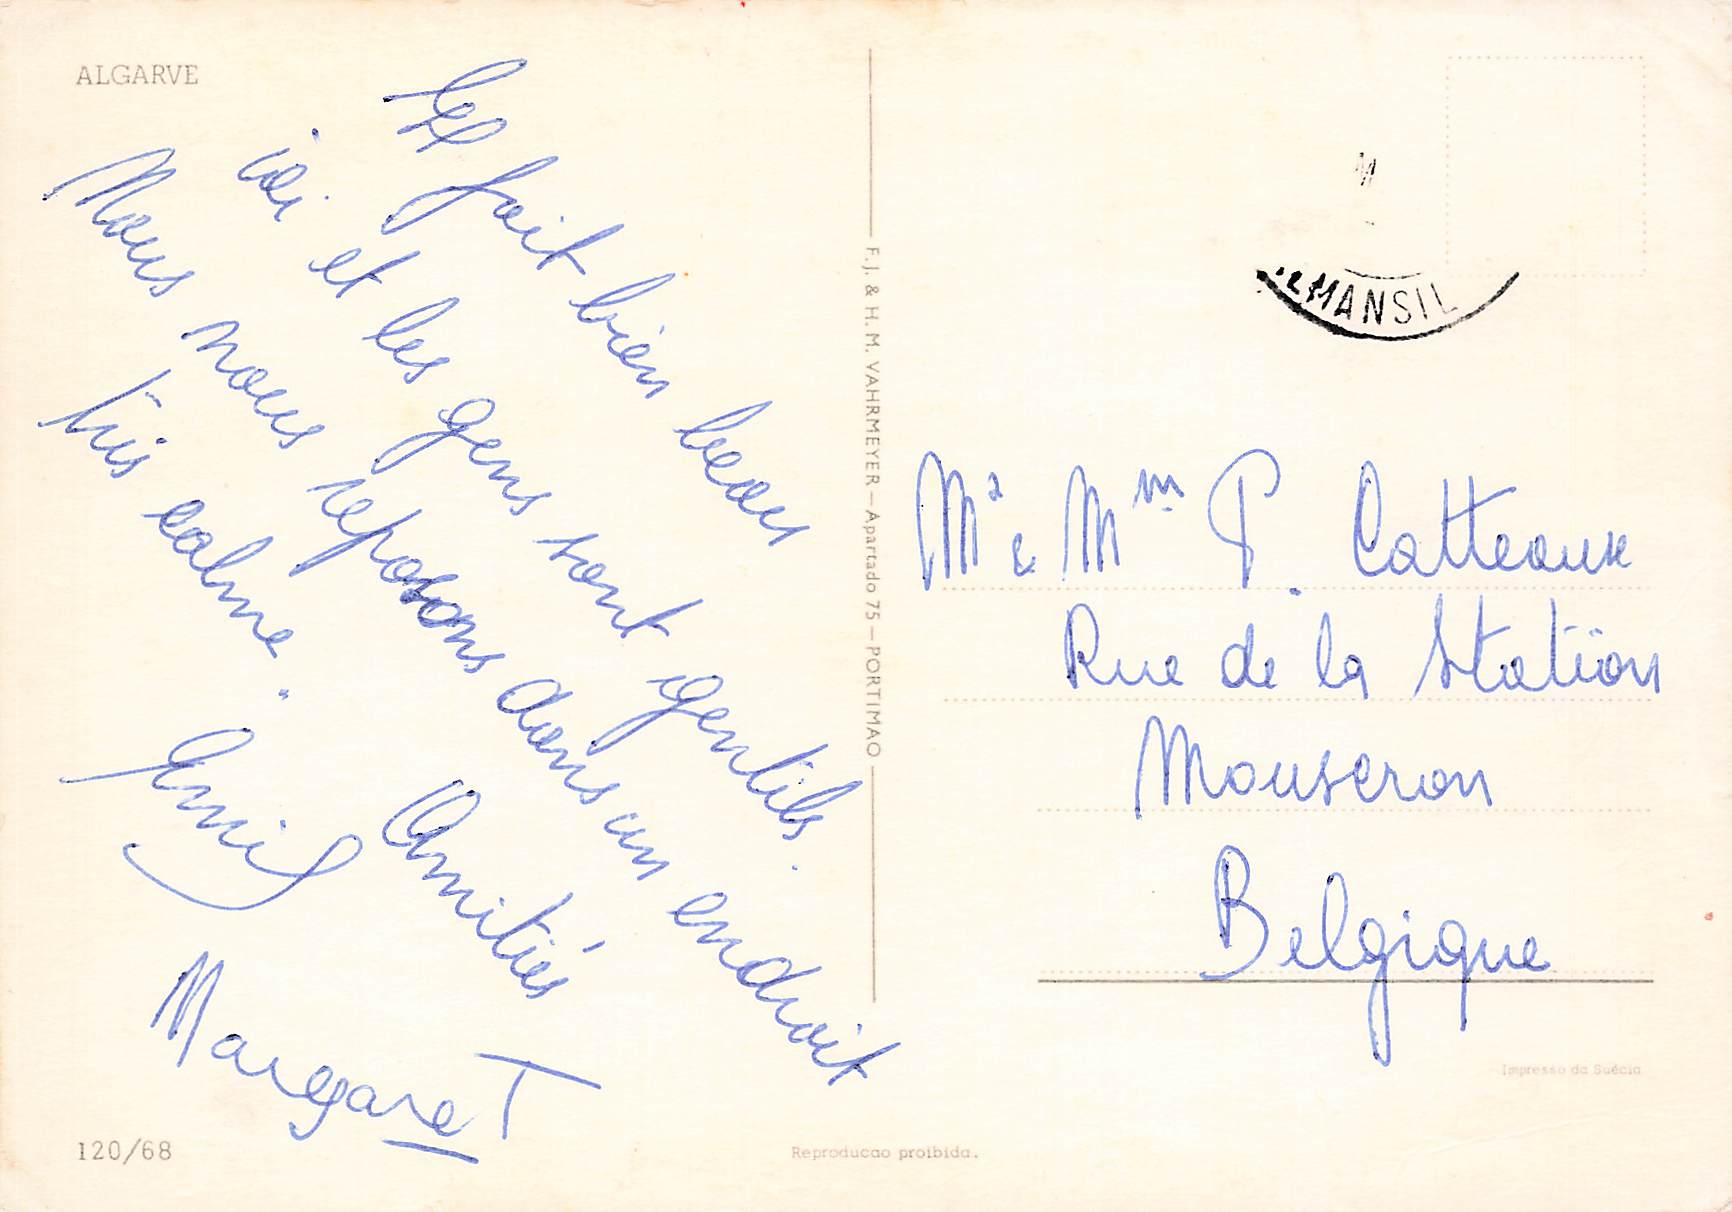 ALGARVE
Il fait bien beau
ici et les gens sont gentils.
Nous nous reposons dans un endroit
très calme.
Amitiés
Margaret
120/68
F. J. & H. M. VAHRMEYER — Apartado 75 — PORTIMAO
Reproducao proibida.
MANSIL
Mr & Mm P. Catteaux
Rue de la Station
Mouscron
Belgique
Impresso da Suécia